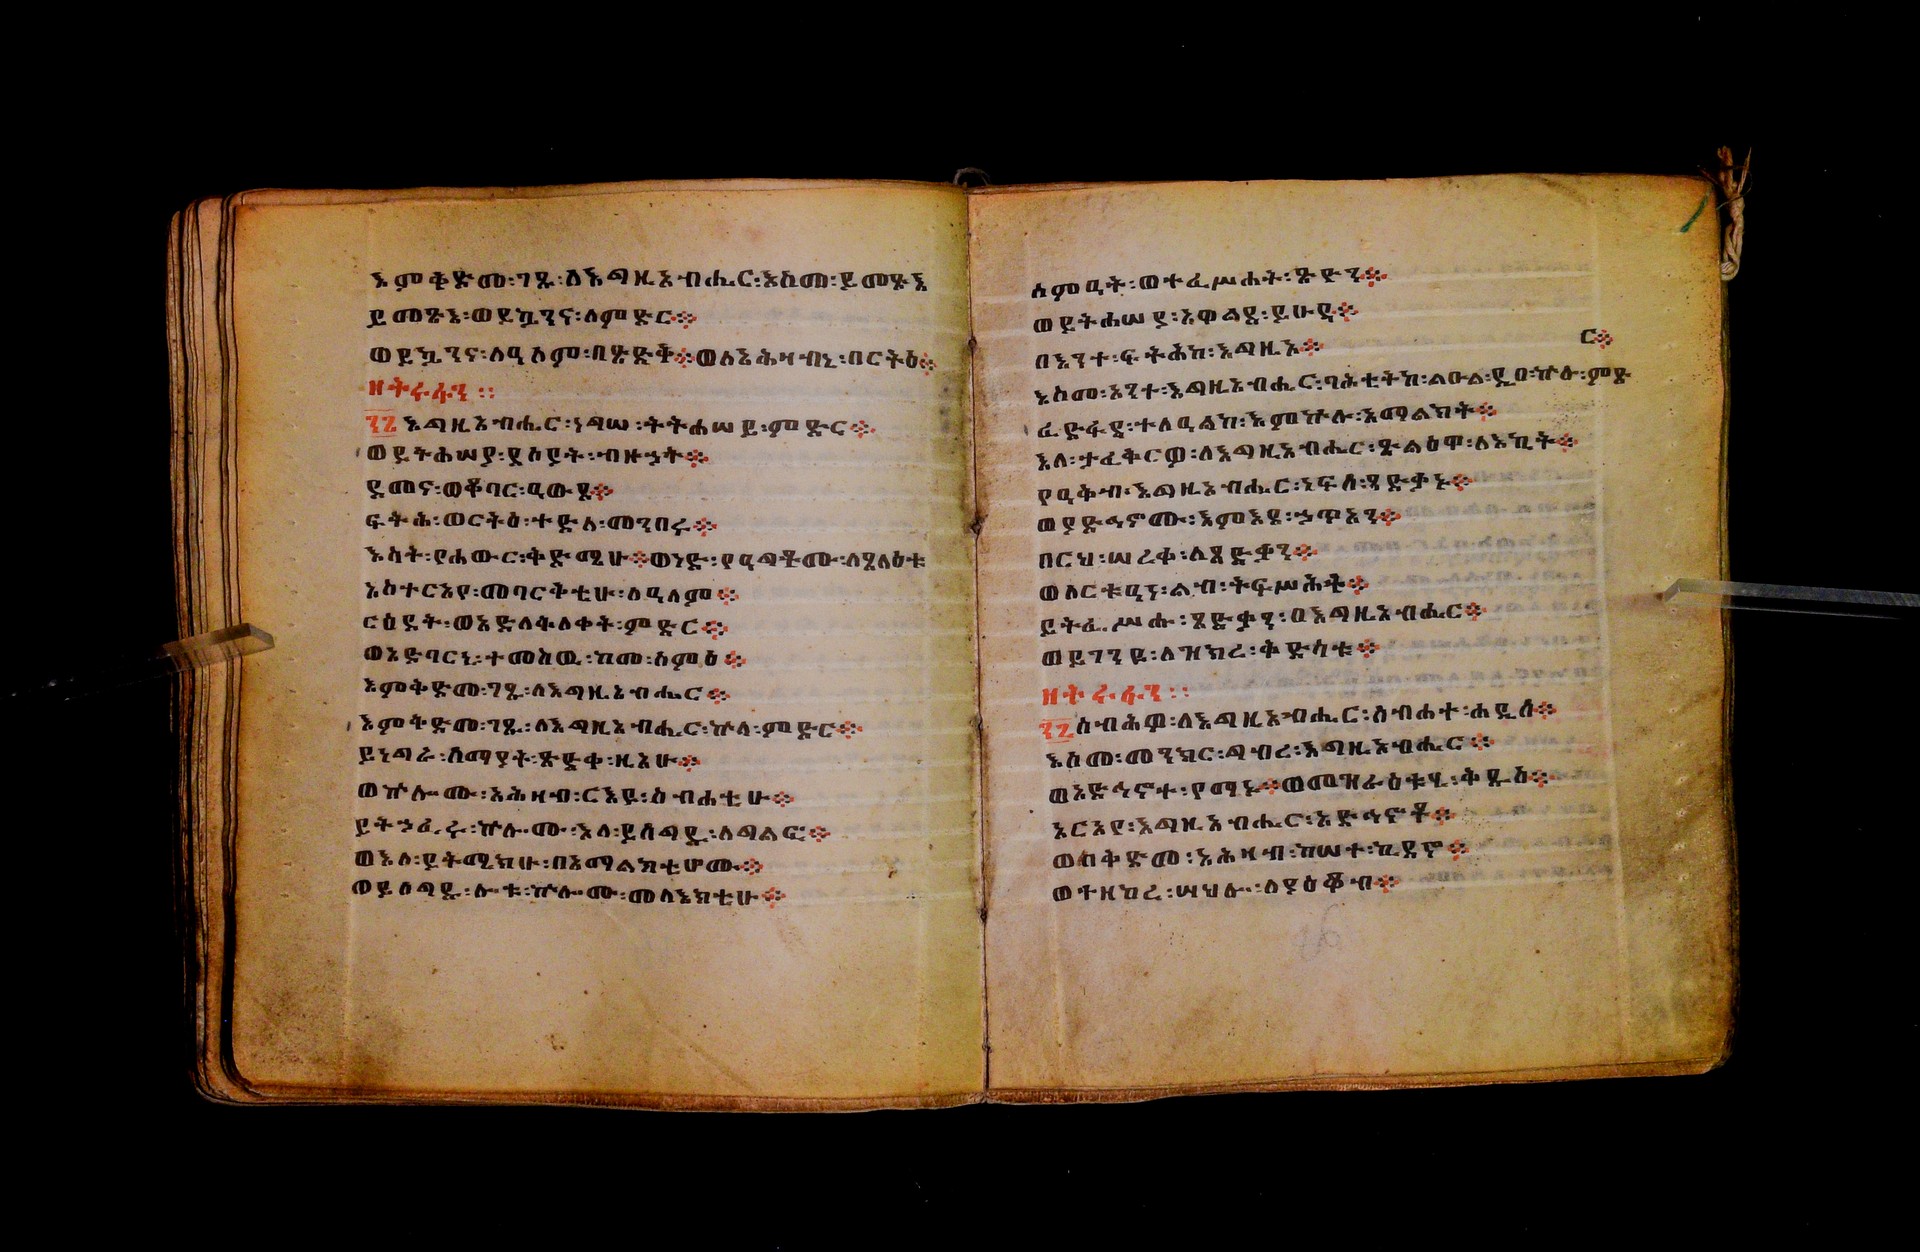 እምቅድመ፡ገጹ፡ለእግዚአብሔር፡እስመ፡ይመጽእ
ይመጽእ፡ወይኴንና፡ለምድር፨
ወይኴንና፡ለዓለም፡በጽድቅ፨ወለአሕዛብኒ፡በርትዕ፨
ዘትሩፋን ፡፡
፺፮ እግዚአብሔር፡ነግሠ፡ትትሐሠይ፡ምድር፨
ወይትሐሠያ፡ደሰያት፡ብዙኃት፨
ደመና፡ወቆባር፡ዓውዱ፨
ፍትሕ፡ወርትዕ፡ተድላ፡መንበሩ፨
እሳት፡የሐውር፡ቅድሜሁ፨ወነድ፡የዓግቶሙ፡ለጸላዕቱ
አስተርአየ፡መባርቅቲሁ፡ለዓለም፨
ርዕደት፡ወአድለቅለቀት፡ምድር፨
ወአድባርኒ፡ተመስዉ፡ከመ፡ሰምዕ፨
እምቅድመ፡ገጹ፡ለእግዚአብሔር፨
እምቅድመ፡ገጹ፡ለእግዚአብሔር፡ኵላ፡ምድር፨
ይነግራ፡ሰማያት፡ጽድቀ፡ዚአሁ፨
ወኵሎሙ፡አሕዛብ፡ርእዩ፡ስብሐቲሁ፨
ይትኃፈሩ፡ኵሎሙ፡እለ፡ይሰግዱ፡ለግልፎ፨
ወእለ፡ይትሜክሁ፡በአማልክቲሆሙ፨
ወይሰግዱ፡ሎቱ፡ኵሎሙ፡መላእክቲሁ፨
ሰምዓት፡ወተፈሥሐት፡ጽዮን፨
ወይትሐሠያ፡አዋልደ፡ይሁዳ፨
በእንተ፡ፍትሕከ፡እግዚእ፨
ር፨
እስመ፡አንተ፡እግዚአብሔር፡ባሕቲትከ፡ልዑል፡ዲበ፡ኵሉ፡ምድ
ፈድፋደ፡ተለዓልከ፡እምኵሉ፡አማልክት፨
እለ፡ታፈቅርዎ፡ለእግዚአብሔር፡ጽልዕዋ፡ለእኪት፨
የዓቅብ፡እግዚአብሔር፡ነፍሰ፡ጻድቃኑ፨
ወያድኅኖሙ፡እምእደ፡ኃጥአን፨
በርህ፡ሠረቀ፡ለጻድቃን፨
ወለርቱዓነ፡ልብ፡ትፍሥሕት፨
ይትፈሥሑ፡ጻድቃን፡በእግዚአብሔር፨
ወይገንዩ፡ለዝክረ፡ቅድሳቱ፨
ዘትሩፋን ፡፡
፺፯ሰብሕዎ፡ለእግዚአብሔር፡ስብሐተ፡ሐዲሰ፨
እስመ፡መንክር፡ገብረ፡እግዚአብሔር፨
ወአድኅኖተ፡የማኑ፨ወመዝራዕቱሂ፡ቅዱስ፨
አርአየ፡እግዚአብሔር፡አድኅኖቶ፨
ወበቅድመ፡አሕዛብ፡ከሠተ፡ኪዳኖ፨
ወተዘከረ፡ሣህሎ፡ለያዕቆብ፨